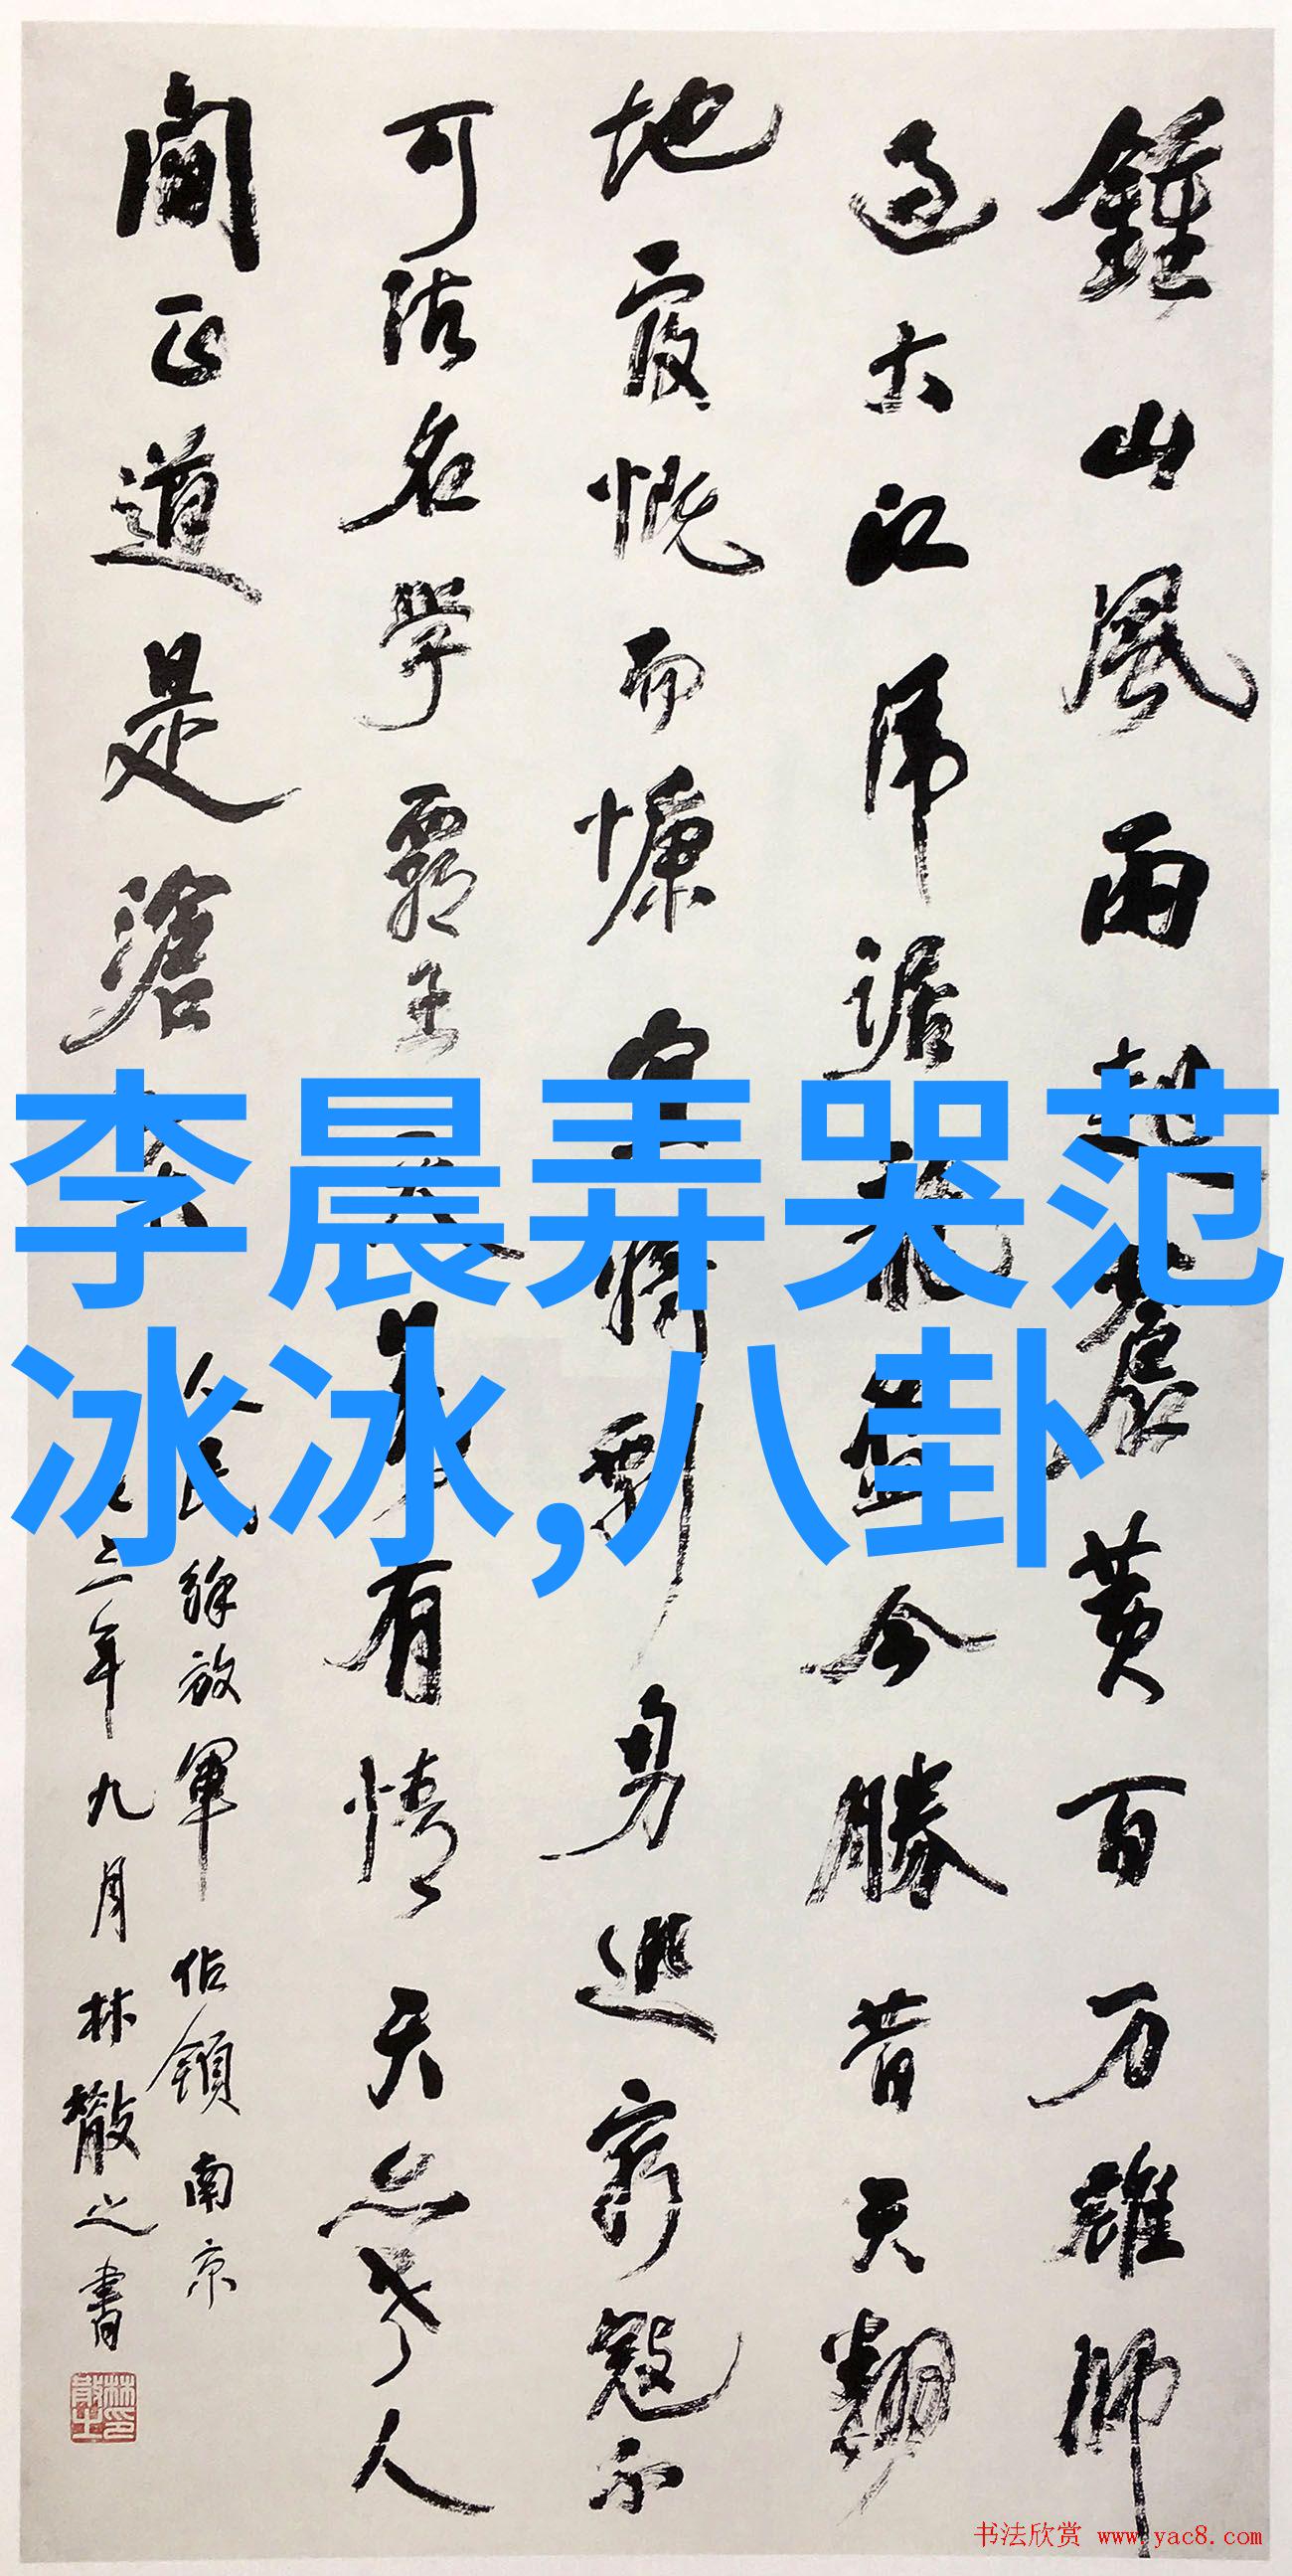 鍾山風雨起蒼黄百万雄師
过大江虎踞龙盘今勝昔天翻
地覆慨而慷宜将剩勇追穷寇不
可沽名學霸王天若有情天亦老人
間正道是滄桑
人民解放軍佔領南京
三年九月林散之書
林散之印
李晨弄哭范
冰冰,八卦
书法欣赏 www.yac8.com